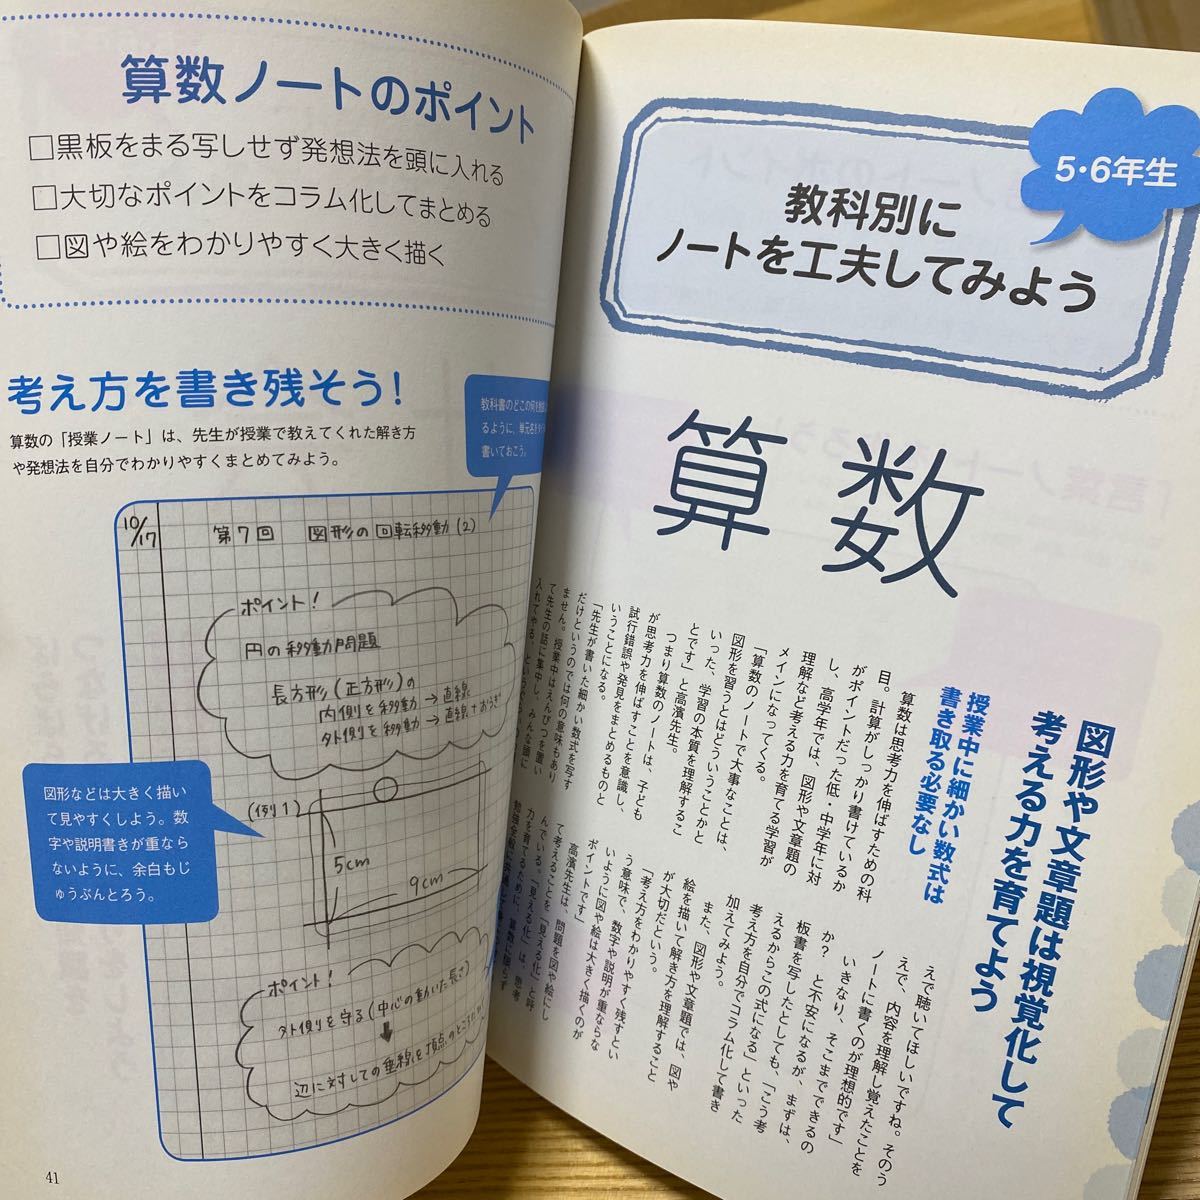 5・6年生
教科別に
ノートを工夫してみよう
算数
図形や文章題は視覚化して
考える力を育てよう
授業中に細かい数式は
書き取る必要なし
算数は思考力を伸ばすための科
目。計算がしっかり書けているか
がポイントだった低・中学年に対
し、高学年では、図形や文章題の
理解など考える力を育てる学習が
メインになってくる。
「算数のノートで大事なことは、
図形を習うとはどういうことかと
いった、学習の本質を理解するこ
とです」と高濱先生。
つまり算数のノートは、子ども
が思考力を伸ばすことを意識し、
試行錯誤や発見をまとめるものと
いうことになる。
「先生が書いた細かい数式を写す
だけというのでは何の意味もあり
ません。授業中はえんぴつを置い
て先生の話に集中し、みんな頭に
入れてやる、という
えで聴いてほしいですね。そのう
えで、内容を理解し覚えたことを
ノートに書くのが理想的です」
いきなり、そこまでできるの
か？と不安になるが、まずは、
板書を写したとしても、「こう考
えるからこの式になる」といった
考え方を自分でコラム化して書き
加えてみよう。
また、図形や文章題では、図や
絵を描いて解き方を理解すること
が大切だという。
「考え方をわかりやすく残すとい
う意味で、数字や説明が重ならな
いように図や絵は大きく描くのが
ポイントです」
高濱先生は、問題を図や絵にし
て考えることを「見える化」と呼
んでいる。「見える化」は、思考
力を育てるために、算数に限らず
算数ノートのポイント
□黒板をまる写しせず発想法を頭に入れる
□大切なポイントをコラム化してまとめる
□図や絵をわかりやすく大きく描く
考え方を書き残そう！
算数の「授業ノート」は、先生が授業で教えてくれた解き方
や発想法を自分でわかりやすくまとめてみよう。
教科書のどこの何を
るように、単元名を
書いておこう。
10/17
第7回 図形の回転移動(2)
ポイント！
円の移動問題
長方形(正方形)の
内側を移動→直線
外側を移動→直線＋おうぎ
(例1)
5cm
9cm
図形などは大きく描い
て見やすくしよう。数
字や説明書きが重なら
ないように、余白もじ
ゅうぶんとろう。
ポイント！
外側を守る(中心の動いた長さ)
辺に対しての垂線を頂点のところで
41